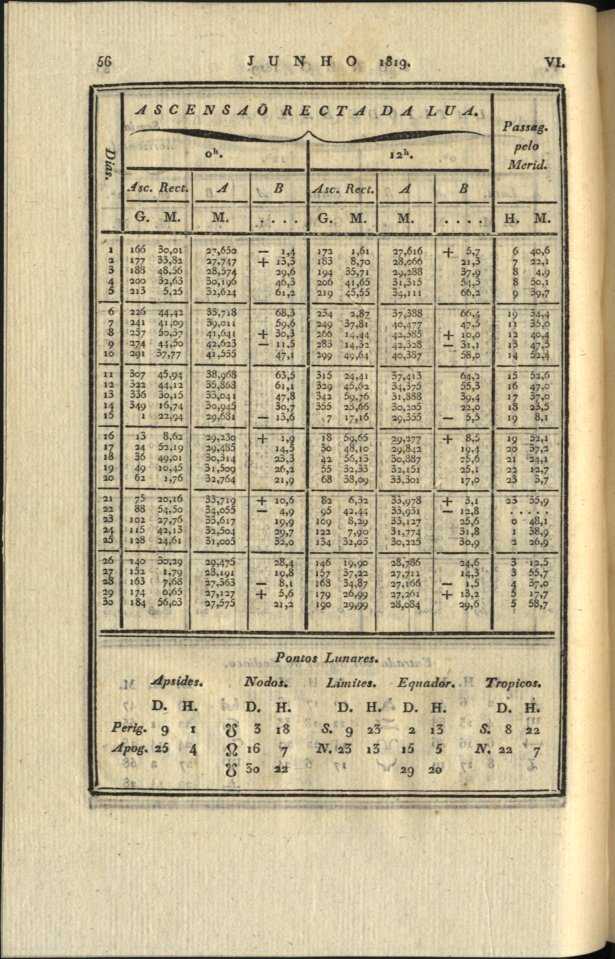 56 JUNHO 1819. VI.
ASCENSAÕ RECTA DA LUA.
Dias. 0h. 12h. Passag. pelo Merid.
Asc. Rect. A B Asc. Rect. A B
G. M. M. . . . . G. M. M. . . . . H. M.
1 166 30,01 27,650 — 1,4 172 1,61 27,616 + 5,7 6 40,6
2 177 33,82 27,747 + 13,3 183 8,70 28,066 21,3 7 22,1
3 188 48,56 28,574 29,6 194 35,71 29,288 37,9 8 4,9
4 200 32,63 30,196 46,3 206 41,65 31,315 54,3 8 50,1
5 213 5,25 32,624 61,2 219 45,55 34,111 66,2 9 39,7
6 226 44,42 35,718 68,3 234 2,87 37,388 66,4 10 34,4
7 241 41,09 39,011 59,6 249 37,81 40,477 47,5 11 35,0
8 257 50,37 41,641 + 30,3 266 14,44 42,383 + 10,0 12 40,4
9 274 44,50 42,623 — 11,5 283 14,32 42,328 — 31,1 13 47,5
10 291 37,77 41,555 47,1 299 49,64 40,387 58,0 14 52,4
11 307 45,94 38,968 63,5 315 24,41 37,413 64,2 15 52,6
12 322 44,12 35,868 61,1 329 45,62 34,375 55,3 16 47,0
13 336 30,15 33,041 47,8 342 59,76 31,888 39,4 17 37,0
14 349 16,74 30,945 30,7 355 23,66 30,205 22,0 18 23,5
15 1 22,94 29,681 — 13,6 7 17,16 29,355 — 5,5 19 8,1
16 13 8,62 29,230 + 1,9 18 59,65 29,277 + 8,5 19 52,1
17 24 52,19 29,485 14,5 30 48,10 29,842 19,4 20 37,2
18 36 49,01 30,314 23,3 42 56,13 30,887 25,6 21 24,1
19 49 10,45 31,509 26,2 55 32,33 32,151 25,1 22 12,7
20 62 1,76 32,764 21,9 68 38,09 33,301 17,0 23 3,7
21 75 20,16 33,719 + 10,6 82 6,32 33,978 + 3,1 23 55,9
22 88 54,50 34,055 — 4,9 95 42,44 33,931 — 12,8 . . . . .
23 102 27,76 33,617 19,9 109 8,29 33,127 25,6 0 48,1
24 115 42,13 32,504 29,7 122 7,90 31,774 31,8 1 38,9
25 128 24,61 31,005 32,0 134 32,05 30,225 30,9 2 26,9
26 140 30,29 29,475 28,4 146 19,90 28,786 24,6 3 12,5
27 152 1,79 28,191 19,8 157 37,22 27,711 14,3 3 55,7
28 163 7,68 27,363 — 8,1 168 34,87 27,166 — 1,5 4 37,0
29 174 0,65 27,127 + 5,6 179 26,99 27,261 + 13,2 5 17,7
30 184 56,03 27,575 21,2 190 29,99 28,084 29,6 5 58,7
Pontos Lunares.
Apsides. Nodos. Limites. Equador. Tropicos.
D. H. D. H. D. H. D. H. D. H.
Perig. 9 1 ☋ 3 18 S. 9 23 2 13 S. 8 22
Apog. 25 4 ☊ 16 7 N. 23 13 15 5 N. 22 7
☋ 30 22 29 20